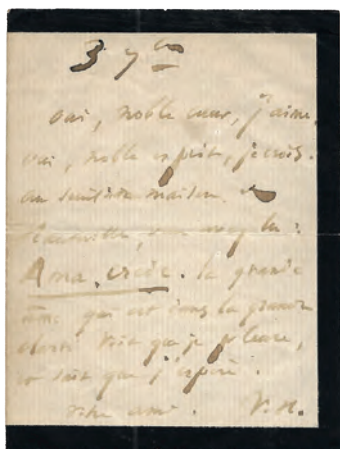 3 7bre
oui, noble cœur, j'aime.
oui, noble esprit, je crois.
au seuil de ma maison de
lu :
Ama, crede. la grande
âme qui est dans la grande
clarté voit que je pleure,
et sait que j'espère.
votre ami. V. H.